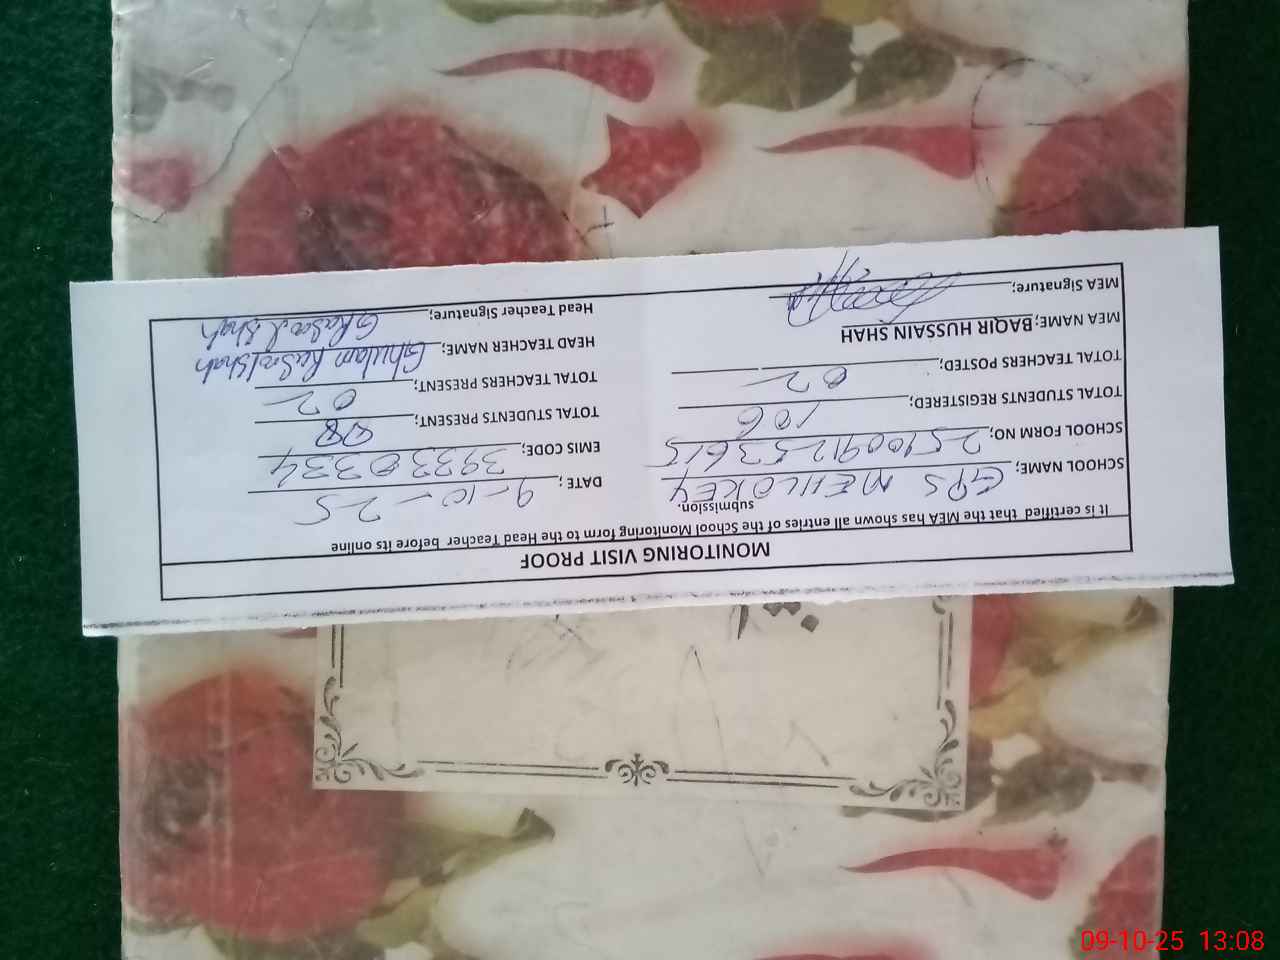 MONITORING VISIT PROOF
It is certified that the MEA has shown all entries of the School Monitoring form to the Head Teacher before its online submission.
SCHOOL NAME; GPS MEHLOKEY DATE; 9-10-25
SCHOOL FORM NO; 2510091253615 EMIS CODE; 39330334
TOTAL STUDENTS REGISTERED; 106 TOTAL STUDENTS PRESENT; 98
TOTAL TEACHERS POSTED; 02 TOTAL TEACHERS PRESENT; 02
MEA NAME; BAQIR HUSSAIN SHAH HEAD TEACHER NAME; Ghulam Rasool Shah
MEA Signature; Head Teacher Signature; G Rasool Shah
09-10-25 13:08